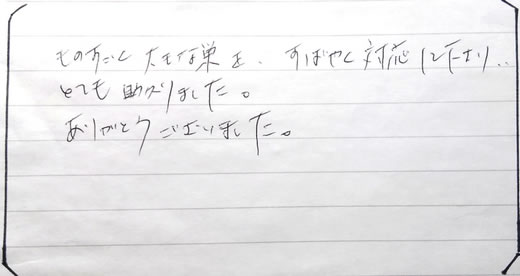 ものすごく大きな巣を、すばやく対応して下さり、
とても助かりました。
ありがとうございました。